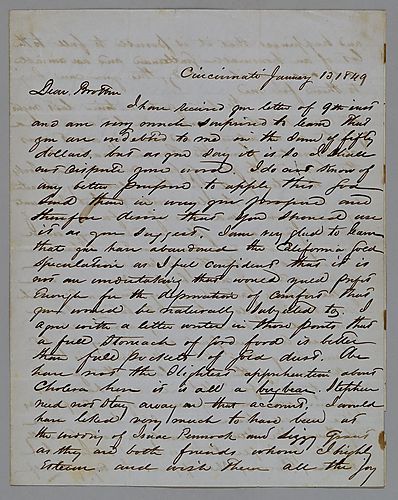 Cincinnati January 13, 1849
Dear Brother
I have recieved your letter of 9th inst
and am very much surprised to learn that
you are indebted to me in the sum of fifty
dollars, but as you say it is so I shall
not dispute your word. I do not know of
any better purpose to apply this God
send than in way you propose and
therefore desire that you should use
it as you suggest. I am very glad to learn
that you have abandoned the California Gold
speculation as I feel confident that it is
not an undertaking that would yield profit
enough for the deprivation of comfort that
you would be naturally subjected to. I
agree with a letter writer in those parts that
a full stomach of good food is better
than full pockets of gold dust. We
have not the slightest apprehension about
Cholera here it is all a bugbear.
need not stay away on that account. I would
have liked very much to have been at
the wedding of Isaac Pennock and Lizzy Grant
as they are both friends whom I highly
Esteem and wish them all the joy